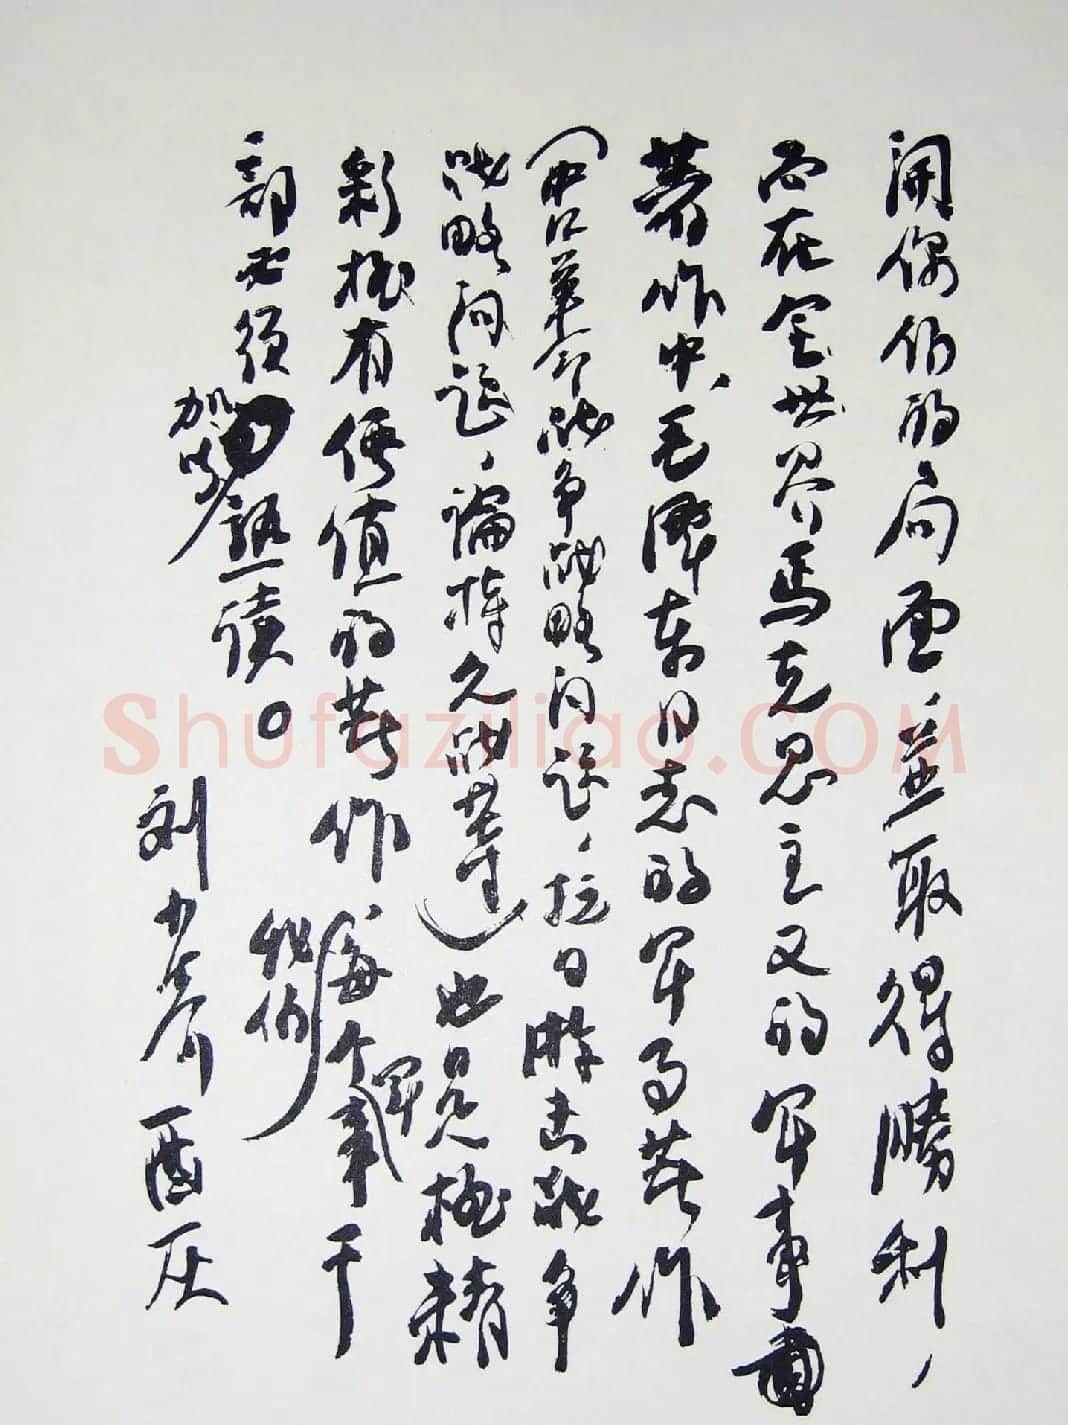 开你们的局面，并取得胜利，
而在全世界马克思主义的军事
著作中，毛泽东同志的军事著作
（中国革命战争战略问题，抗日游击战争
战略问题，论持久战等）也是极精
彩极有价值的著作，我们每个军事干
部必须加以熟读。
刘少奇
Shufaziliao.COM